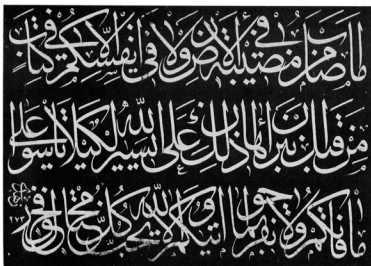 ما اصاب من مصيبة في الارض ولا في انفسكم الا في كتاب
من قبل ان نبراها ان ذلك على الله يسير لكيلا تاسوا على
ما فاتكم ولا تفرحوا بما اتيكم والله لا يحب كل مختال فخور
٢٧٣